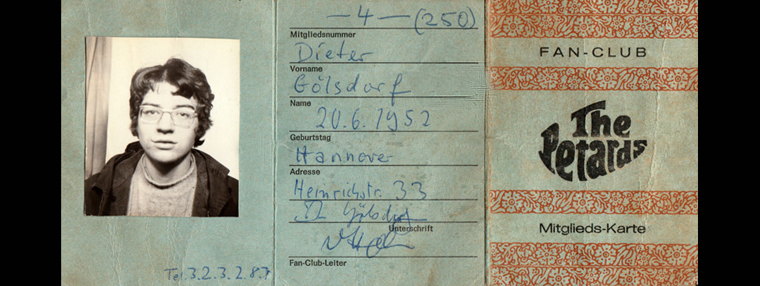 Tel. 3.2.3.2.8.7
— 4 — (250)
Mitgliedsnummer
Dieter
Vorname
Gölsdorf
Name
20.6.1952
Geburtstag
Hannover
Adresse
Heinrichstr. 33
Gölsdorf
Unterschrift
Fan-Club-Leiter
FAN-CLUB
The
Petards
Mitglieds-Karte